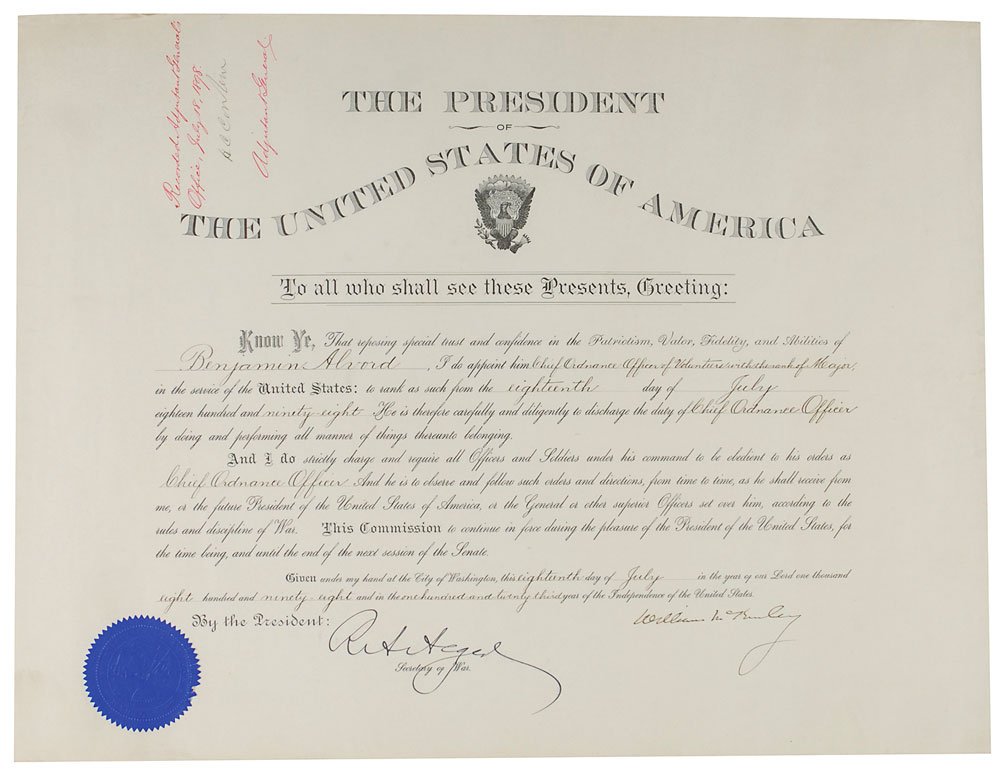 Recorded. Adjutant General's
Office, July 18, 1898.
Adjutant General.
THE PRESIDENT
OF
THE UNITED STATES OF AMERICA
To all who shall see these Presents, Greeting:
Know Ye, That reposing special trust and confidence in the Patriotism, Valor, Fidelity, and Abilities of
Benjamin Alvord, I do appoint him Chief Ordnance Officer of Volunteers with the rank of Major,
in the service of the United States: to rank as such from the eighteenth day of July
eighteen hundred and ninety-eight. He is therefore carefully and diligently to discharge the duty of Chief Ordnance Officer
by doing and performing all manner of things thereunto belonging.
And I do strictly charge and require all Officers and Soldiers under his command to be obedient to his orders as
Chief Ordnance Officer. And he is to observe and follow such orders and directions, from time to time, as he shall receive from
me, or the future President of the United States of America, or the General or other superior Officers set over him, according to the
rules and discipline of War. This Commission to continue in force during the pleasure of the President of the United States, for
the time being, and until the end of the next session of the Senate.
Given under my hand at the City of Washington, this eighteenth day of July in the year of our Lord one thousand
eight hundred and ninety-eight and in the one hundred and twenty third year of the Independence of the United States.
By the President:
William McKinley
R A Alger
Secretary of War.